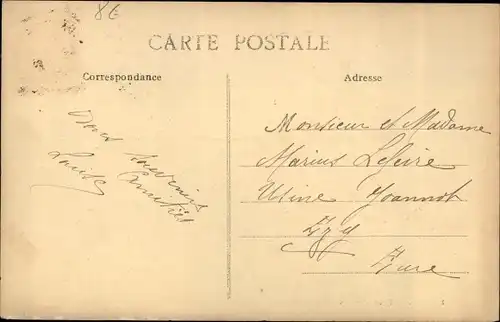 86
CARTE POSTALE
Correspondance
Adresse
Souvenirs
Amitiés
Louise
Monsieur et Madame
Marius Lefeire
Usine Joannot
Ezy
Eure